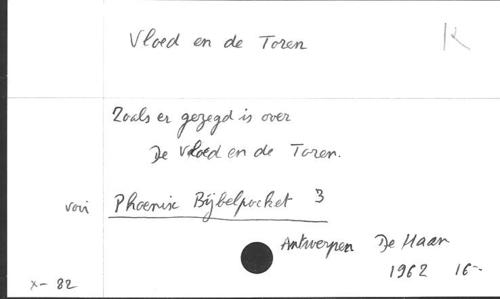 Vloed en de Toren
K
Zoals er gezegd is over
De Vloed en de Toren.
Phoenix Bijbelpocket 3
Antwerpen De Haan
1962 16-
x- 82